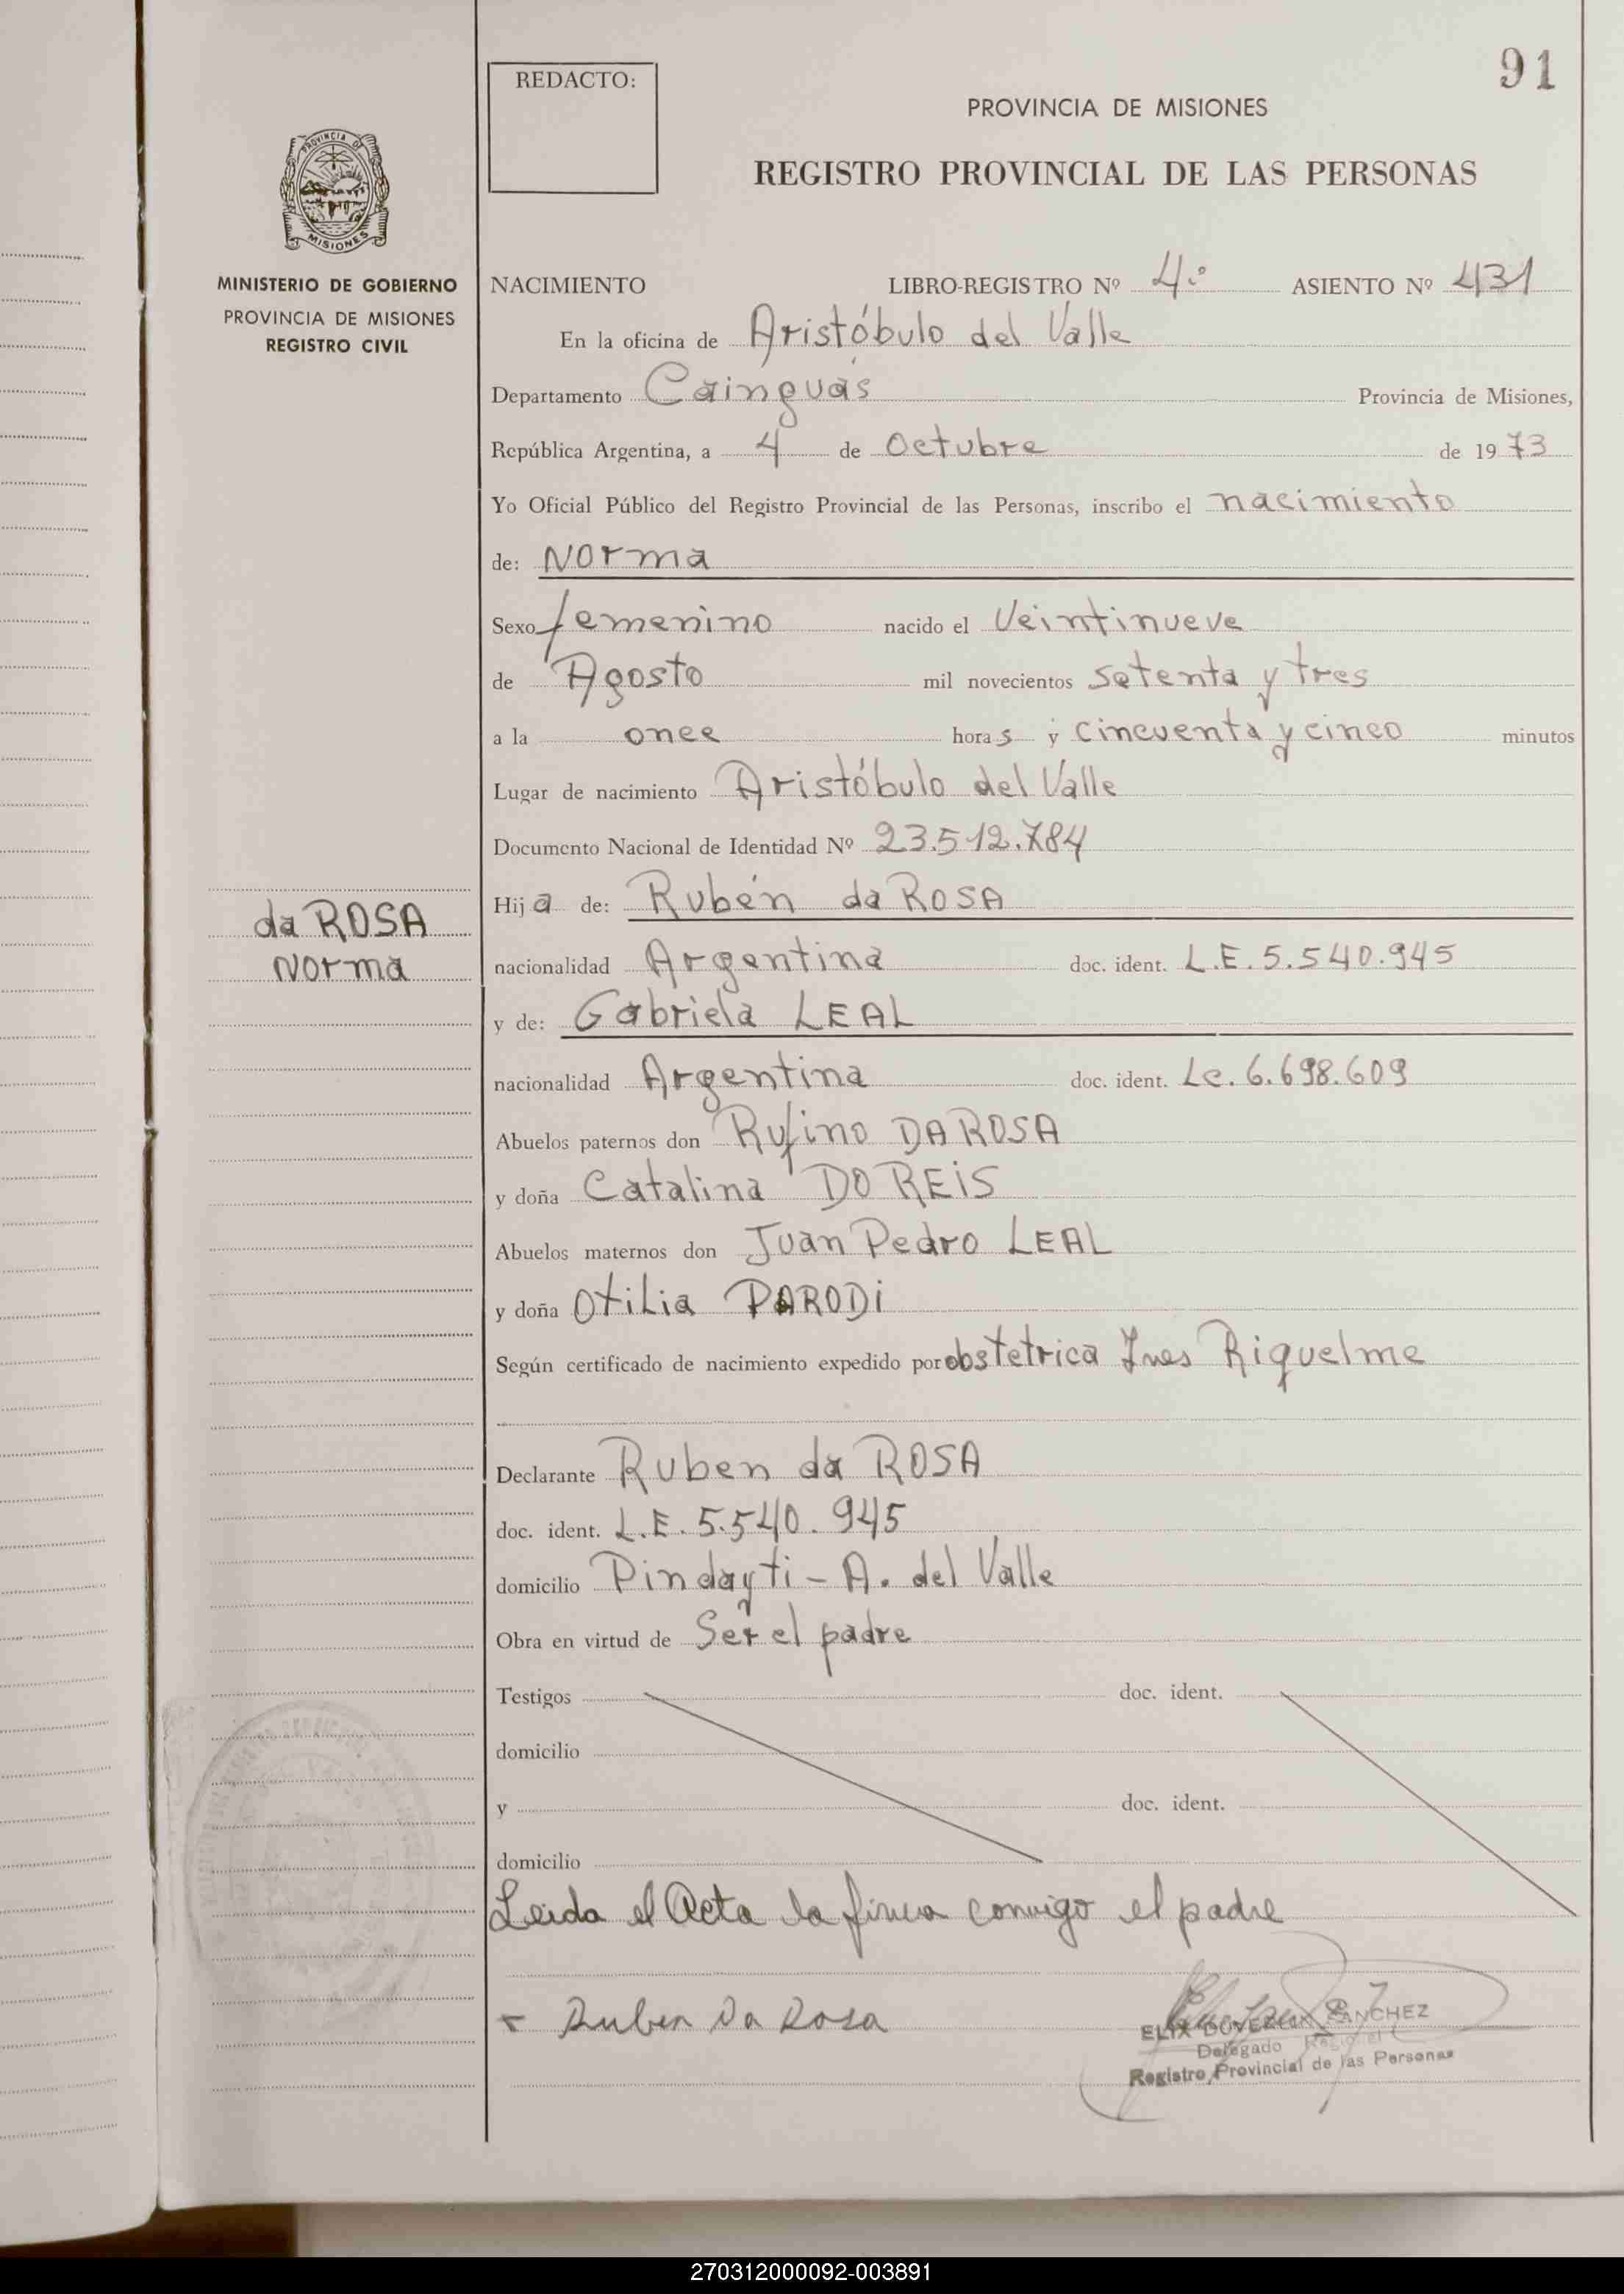 91
REDACTO:
PROVINCIA DE MISIONES
REGISTRO PROVINCIAL DE LAS PERSONAS
PROVINCIA DE
MISIONES
MINISTERIO DE GOBIERNO
PROVINCIA DE MISIONES
REGISTRO CIVIL
NACIMIENTO LIBRO-REGISTRO Nº 4º ASIENTO Nº 431
En la oficina de Aristóbulo del Valle
Departamento Cainguás Provincia de Misiones,
República Argentina, a 4 de Octubre de 1973
Yo Oficial Público del Registro Provincial de las Personas, inscribo el nacimiento
de: Norma
Sexo femenino nacido el Veintinueve
de Agosto mil novecientos setenta y tres
a la once horas y cincuenta y cinco minutos
Lugar de nacimiento Aristóbulo del Valle
Documento Nacional de Identidad Nº 23.512.784
Hija de: Rubén da ROSA
da ROSA
Norma
nacionalidad Argentina doc. ident. L.E. 5.540.945
y de: Gabriela LEAL
nacionalidad Argentina doc. ident. Lc. 6.698.609
Abuelos paternos don Rufino DA ROSA
y doña Catalina DO REIS
Abuelos maternos don Juan Pedro LEAL
y doña Otilia PARODI
Según certificado de nacimiento expedido por obstetrica Ines Riquelme
Declarante Ruben da ROSA
doc. ident. L.E. 5.540.945
domicilio Pindayti - A. del Valle
Obra en virtud de Ser el padre
Testigos doc. ident.
domicilio
y doc. ident.
domicilio
Leida el Acta la firma conmigo el padre
Ruben Da Rosa
ELIX SANCHEZ
Delegado Regional
Registro Provincial de las Personas
270312000092-003891